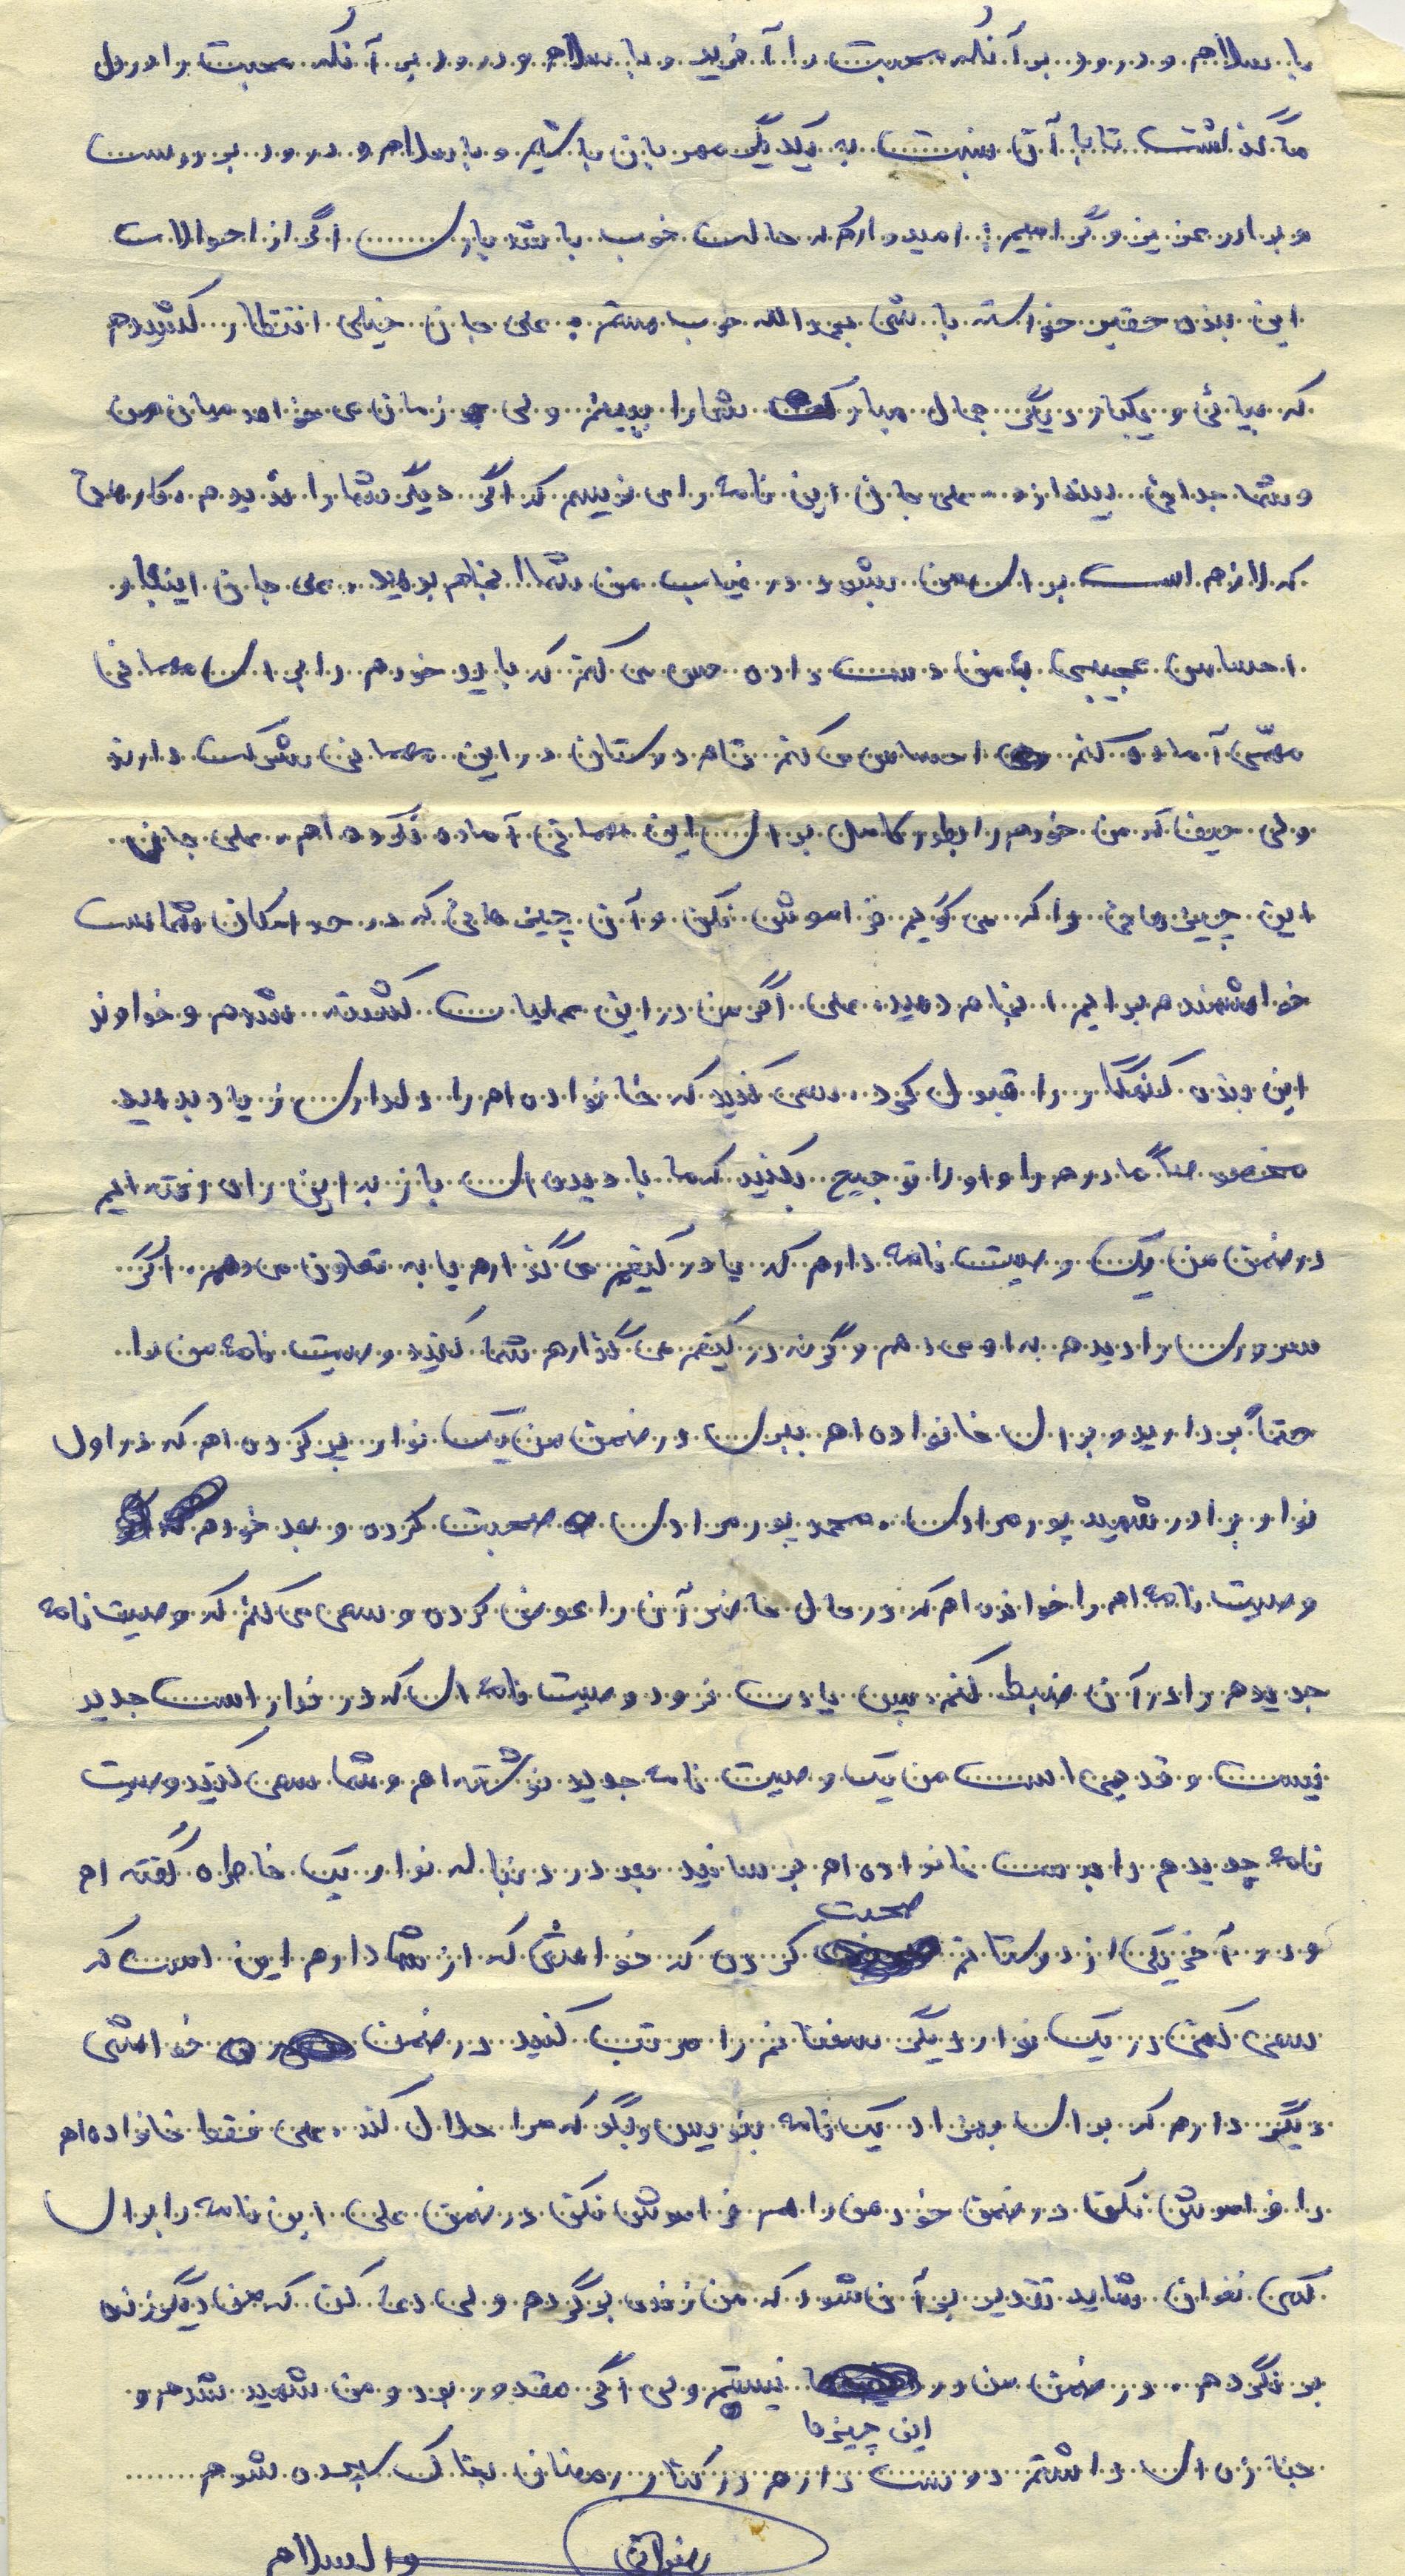 با سلام و درود بر آنکه محبت را آفرید و با سلام و درود بر آنکه محبت را در دل
ما گذاشت تا با آن نسبت به یکدیگر مهربان باشیم و با سلام و درود بر دوست
و برادر عزیز و گرامیم : امیدوارم که حالت خوب باشد باری اگر از احوالات
این بنده حقیر خواسته باشی بحمدالله خوب هستم . علی جان خیلی انتظار کشیدم
که بیائی و یکبار دیگر جمال مبارک شما را ببینم ولی زمان می خواهد میان من
و شما جدائی بیندازد . علی جان این نامه را می نویسم که اگر دیگر شما را ندیدم ، کارهائی
که لازم است برای من بشود در غیاب من شما انجام بدهید . علی جان اینبار
احساس عجیبی بمن دست داده حس می کنم که باید خودم را برای مهمانی
مهمی آماده کنم احساس می کنم تمام دوستان در این مهمانی شرکت دارند
ولی حیف که من خودم را بطور کامل برای این مهمانی آماده نکرده ام . علی جان
این چیزهایی را که می گویم فراموش نکن و آن چیزهایی که در حد امکان شماست
خواهشمندم برایم انجام دهید . علی اگر من در این عملیات کشته شدم و خداوند
این بنده گنهکار را قبول کرد ، سعی کنید که خانواده ام را دلداری زیاد بدهید
مخصوصاً مادرم را و او را توجیح بکنید که ما با دیده ای باز به این راه رفته ایم
در ضمن من یک وصیت نامه دارم که یا در کیفم می گذارم یا به تعاون می دهم . اگر
سروری را دیدم به او می دهم و گرنه در کیفم می گذارم شما کنید وصیت نامه من را
حتماً بردارید و برای خانواده ام ببری در ضمن من یک نوار پر کرده ام که در اول
نوار برادر شهید پورمرادی ، محمد پورمرادی صحبت کرده و بعد خودم
وصیت نامه ام را خوانده ام که در حال حاضر آن را عوض کرده و سعی می کنم که وصیت نامه
جدیدم را در آن ضبط کنم . پس یادت نرود وصیت نامه ای که در نوار است جدید
نیست و قدیمی است من یک وصیت نامه جدید نوشته ام و شما سعی کنید وصیت
نامه جدیدم را بدست خانواده ام برسانید بعد در دنباله نوار یک خاطره گفته ام
و در آخر یکی از دوستانم صحبت کرده که خواهشی که از شما دارم این است که
سعی کنی در یک نوار دیگر سخنانم را مرتب کنید در ضمن خواهشی
دیگر دارم که برای بهزاد یک نامه بنویس و بگو که مرا حلال کند . علی فقط خانواده ام
را فراموش نکن در ضمن خود من را هم فراموش نکن در ضمن علی این نامه را برای
کسی نخوان شاید تقدیر بر آن شود که من زنده برگردم ولی دعا کن که من دیگر زنده
بر نگردم . در ضمن من در این چیزها نیستم ولی اگر مقدور بود و من شهید شدم و
جنازه ای داشتم دوست دارم در کنار رمضانی بخاک سپرده شوم
والسلام